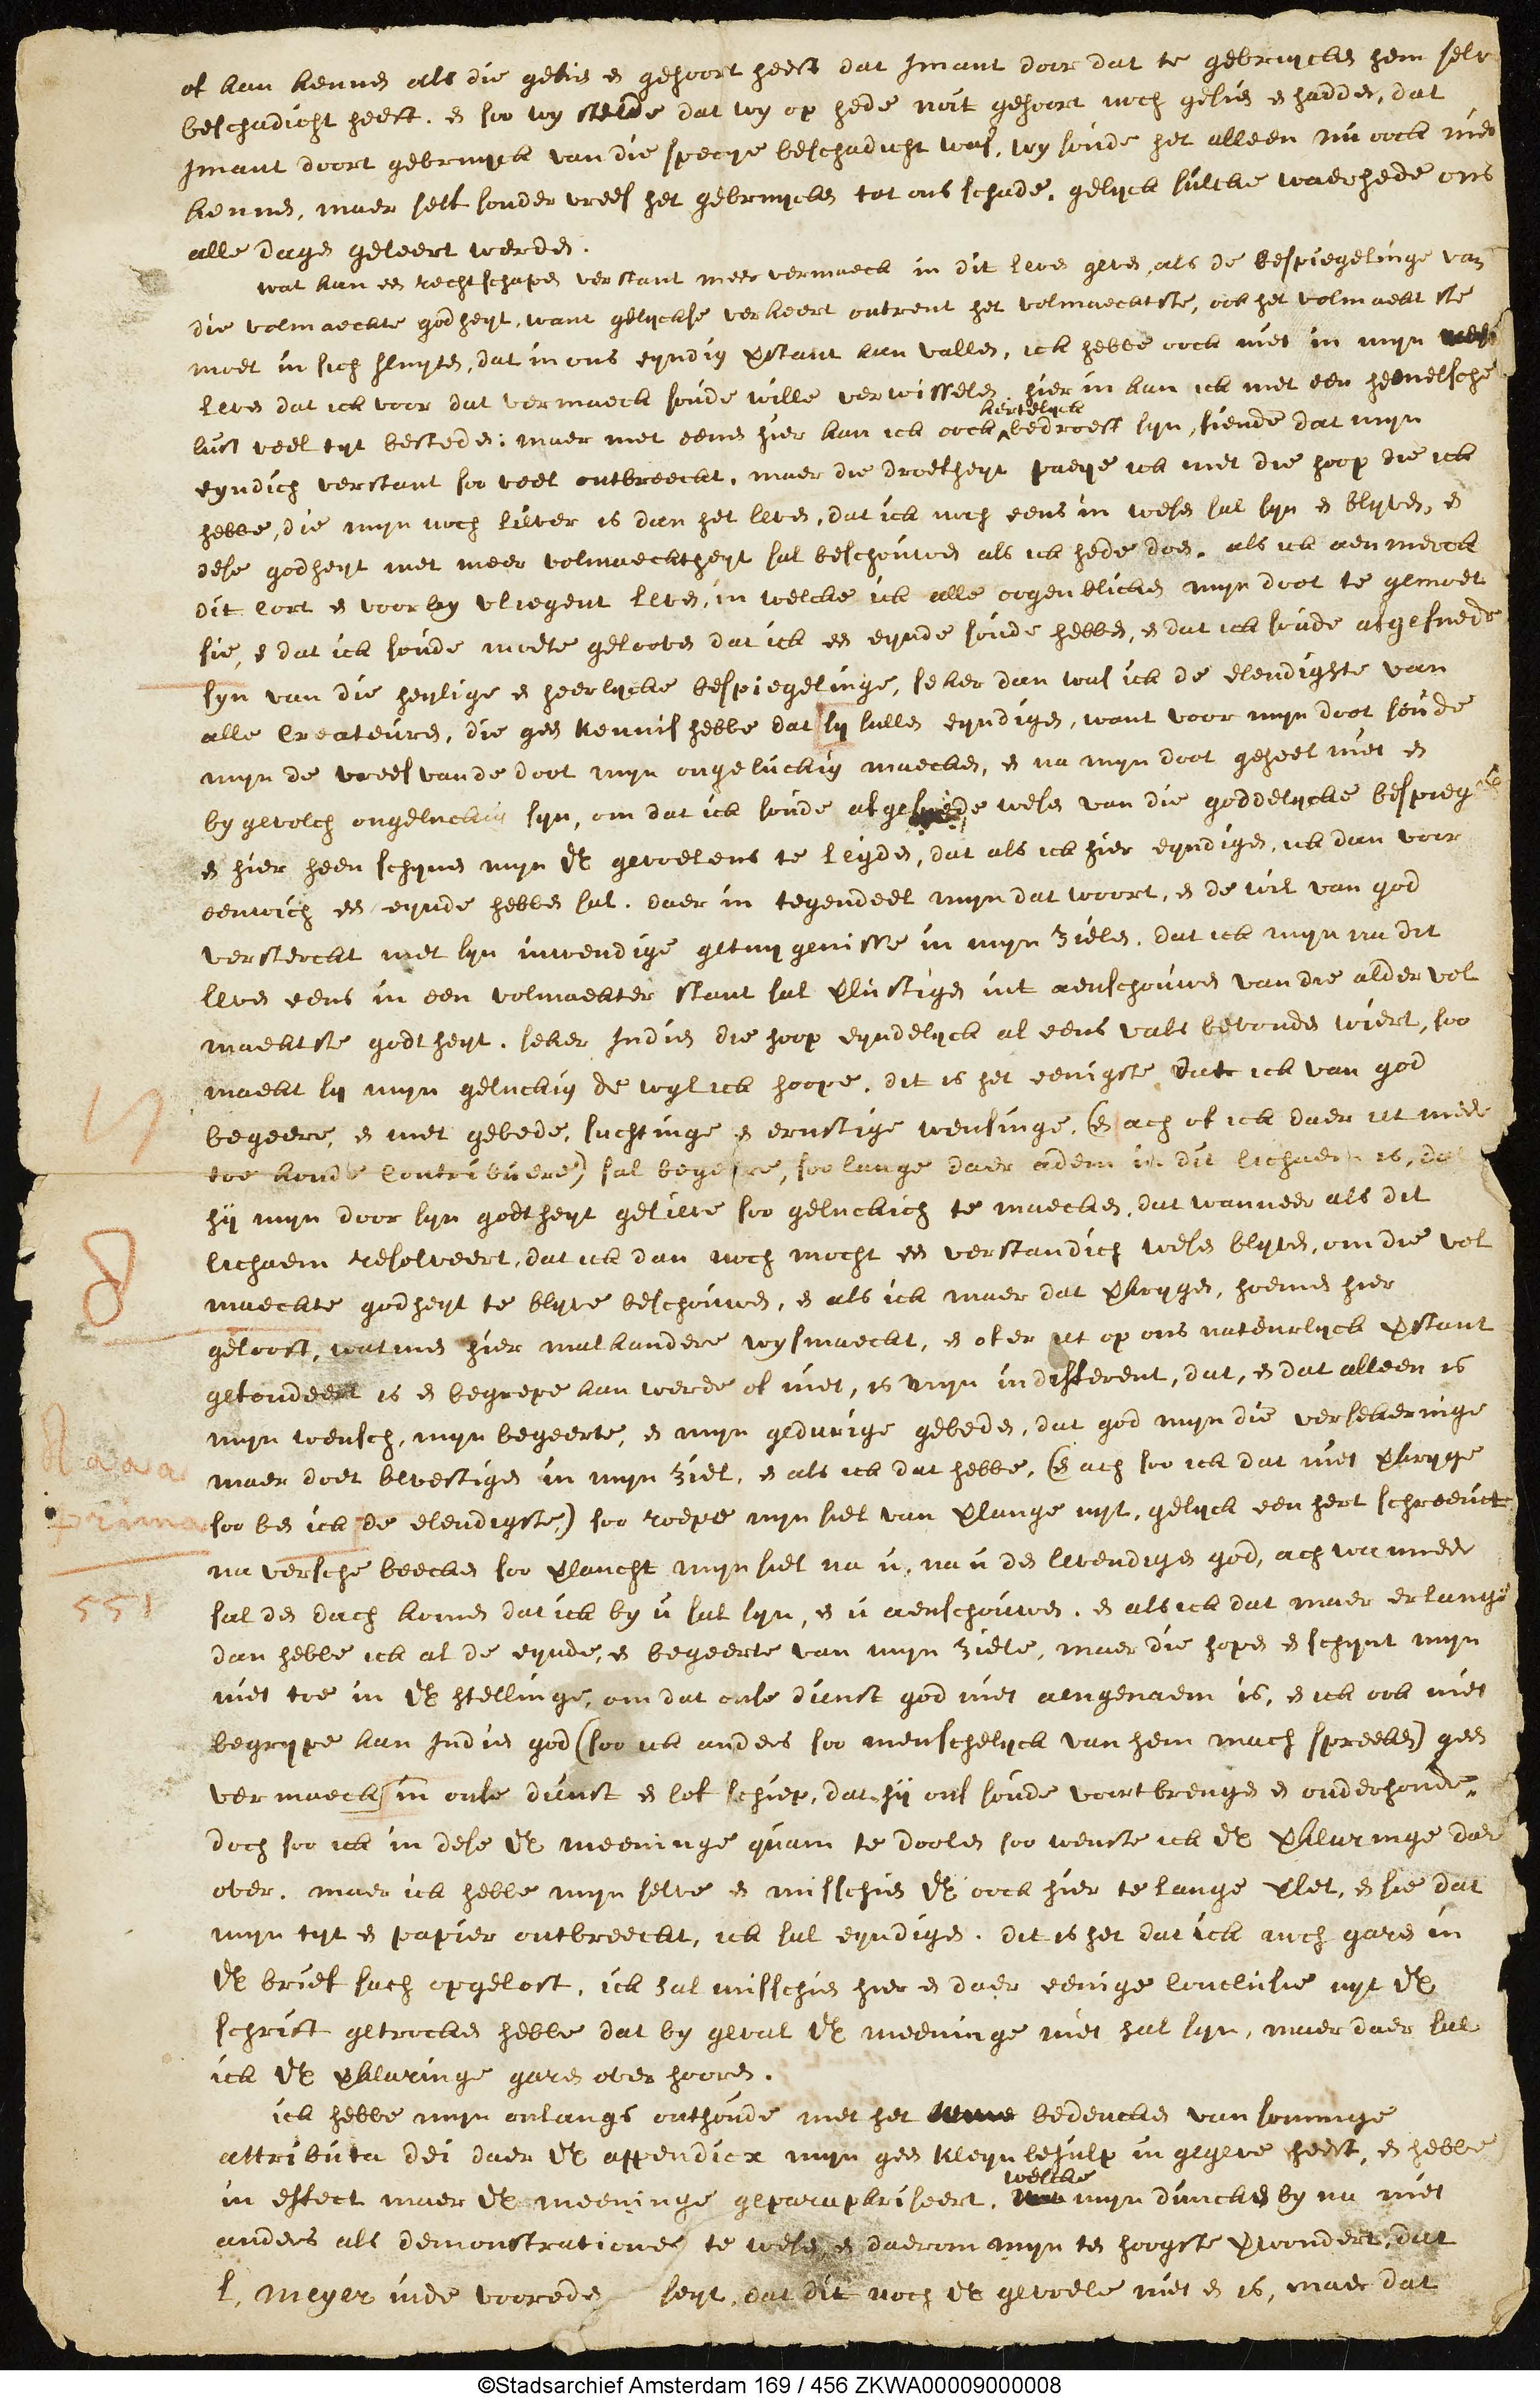 of kan kennen als die gesien en gehoort heeft dat Imant door dat te gebruycken hem selv
beschadicht heeft. en soo wy stelde dat wy op hede noit gehoort noch gesien en hadden, dat
Imant doort gebruyck van die specye beschadicht was, wy soude het alleen nu oock niet
kennen, maer self sonder vrees het gebruycken tot ons schade, gelyck sulcke waerhede ons
alle dagen geleert werden.
wat kan een rechtschapen verstant meer vermaeck in dit leven geven als de bespiegelinge van
die volmaeckte godheyt, want gelyckse verkeert ontrent het volmaecktste, ook het volmaektste
moet in sich sluyten, dat in ons eyndig Vstant kan vallen, ick hebbe oock niet in mijn
leven dat ick voor dat vermaeck soude wille verwisselen, hier in kan ick met een heemelsche
hertelyck
lust veel tyt besteden: maer met eenen hier kan ick oock bedroeft syn, siende dat mijn
eyndich verstant soo veel ontbreeckt, maer die droefheyt paeye ick met die hoop die ick
hebbe, die mijn noch liever is dan het leven, dat ick noch eens in wesen sal syn en blyven, en
dese godheyt met meer volmaecktheyt sal beschouwen als ick hede doen. als ick aenmerck
dit cort en voorby vliegent leven, in welcke ick alle oogenblicken mijn doot te gemoet
sie, en dat ick soude moete gelooven dat ick een eynde soude hebben, en dat ick soude afgesnede
syn van die heylige en heerlycke bespiegelinge, seker dan was ick de elendighste van
alle Createuren, die geen kennis hebbe dat sy sullen eyndigen, want voor mijn doot soude
mijn de vrees vande doot mijn ongeluckig maecken, en na mijn doot geheel niet en
by gevolch ongeluckig syn, om dat ick soude afgesnede wesen van die goddelycke bespieg
en hier heen schynen mijn Ul gevoelens te leyden, dat als ick hier eyndigen, ick dan voor
eenwich een eynde hebben sal. daer in tegendeel mijn dat woort, en de wil van god
versterckt met syn inwendige getuygenisse in mijn zielen. dat ick mijn na dit
leven eens in een volmaekter stant sal Vlustigen int aenschouwen van die alder vol
maektste godtheyt. seker Indien die hoop eyndelyck al eens vals bevonden wiert, soo
maekt sy mijn geluckig de wyl ick hoope. dit is het eenigste dat ick van god
begeere, en met gebede, suchtinge en ernstige wensinge, (en ach of ick daer iet meer
toe konde Contribuere) sal begeere, soo lange daer adem in dit lichaem is, dat
hij mijn door syn godtheyt gelieve soo geluckich te maecken, dat wanneer als dit
lichaem resolveert, dat ick dan noch mocht een verstandich wesen blyven, om die vol
maeckte godheyt te blyve beschouwen, en als ick maer dat Vkryge, hoemen hier
gelooft, watmen hier malkandere wysmaeckt, en of er iet op ons natuerlyck Vstant
gefondeert is en begrepe kan werde of niet, is mijn indifferent, dat, en dat alleen is
mijn wensch, mijn begeerte, en mijn gedurige gebeden, dat god mijn die versekeringe
maer doet bevestigen in mijn ziel, en als ick dat hebbe, (en ach soo ick dat niet Vkryge
prima
soo ben ick de elendigste,) soo roepe mijn siel van Vlange uyt, gelyck een hert schreeuct
na versche beecken soo Vlancht mijn siel na u, na u den levendigen god, ach wanneer
551
sal den dach komen dat ick by u sal syn, en u aenschouwen. en als ick dat maer erlange
dan hebbe ick al de eynde, en begeerte van mijn ziele, maer die hopen en schynt mijn
niet toe in Ul stellinge, om dat onse dienst god niet aengenaem is, en ick ook niet
begrype kan Indien god (soo ick anders soo menschelyck van hem mach spreeken) geen
vermaeck in onse dienst en lof schiep, dat hij ons soude voortbrengen en onderhoude.
doch soo ick in dese Ul meeninge quam te doolen soo wenste ick Ul Vklaringe daer
over. maer ick hebbe mijn selve en misschien Ul oock hier te lange Vlet, en sie dat
mijn tyt en papier ontbreeckt, ick sal eyndigen. dit is het dat ick noch garen in
Ul brief sach opgelost, ick sal misschien hier en daer eenige Conclusie uyt Ul
schrift getrocken hebbe dat by geval Ul meeninge niet sal syn, maer daer sal
ick Ul Vklaringe garen over hooren.
ick hebbe mijn onlangs onthoude met het bedencken van sommige
attributa dei daer Ul appendicx mijn geen kleyn behulp in gegeve heeft, en hebbe
welcke
in effect maer Ul meeninge geparaphriseert, mijn duncken by na niet
anders als demonstrationes te wesen, en daerom mijn ten hoogste Vwondert, dat
L. Meyer inde voorede seyt, dat dit noch Ul gevoele niet en is, maer dat
©Stadsarchief Amsterdam 169 / 456 ZKWA00009000008